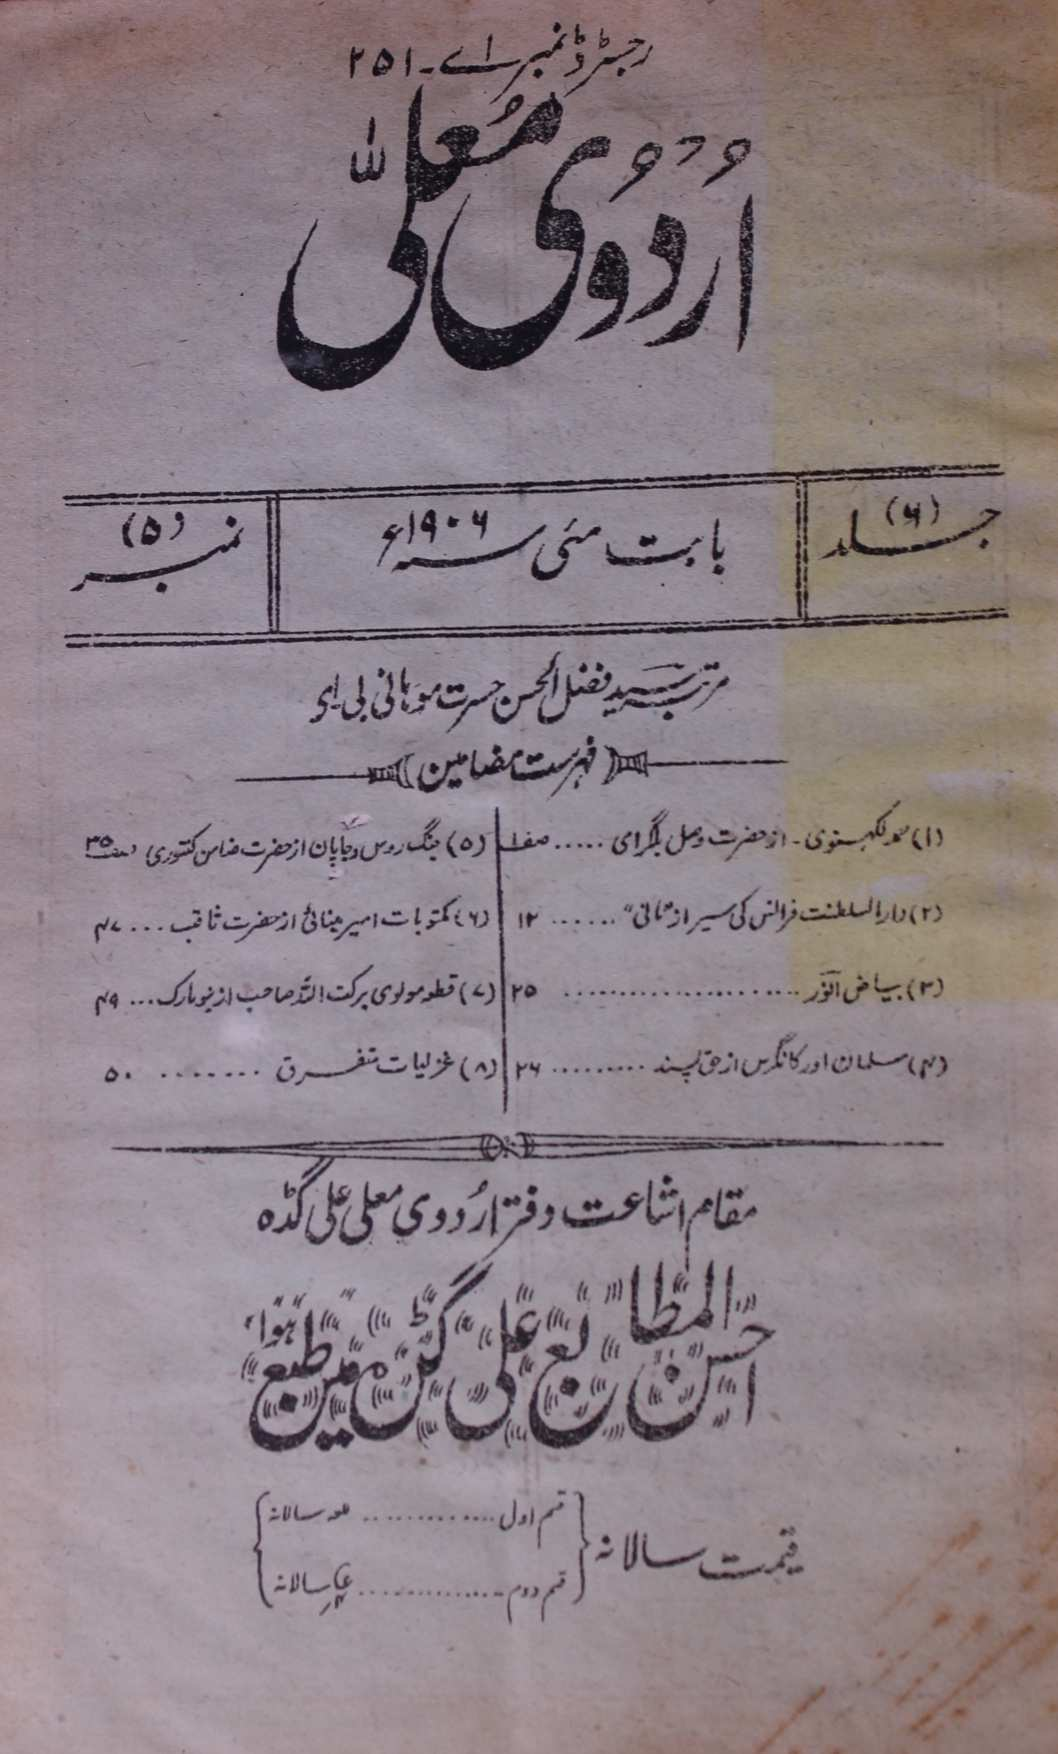 رجسٹرڈ نمبر اے۔۲۵۱
اُردُوی مُعلّی
جلد (۶)
بابت مئی سنہ ۱۹۰۶ء
نمبر (۵)
مرتبہ سید فضل الحسن حسرت موہانی بی۔اے
فہرست مضامین
(۱) سحر لکھنوی۔ از حضرت وصل بلگرامی ..... صفحہ ۱
(۲) دارالسلطنت فرانس کی سیر از "مانی" ...... ۱۲
(۳) بیاض انور .................... ۲۵
(۴) مسلمان اور کانگرس از حق پسند ......... ۲۶
(۵) جنگ روس و جاپان از حضرت ضامن کنتوری صفحہ ۳۵
(۶) مکتوبات امیر مینائی از حضرت ثاقب ... ۴۷
(۷) قطعہ مولوی برکت اللہ صاحب از نیویارک ... ۴۹
(۸) غزلیات متفرق ........ ۵۰
مقام اشاعت دفتر اُردوی معلی علی گڈہ
احسن المطابع علی گڈہ میں طبع ہوا
قیمت سالانہ
قسم اول ............. سالانہ
قسم دوم .............. سالانہ